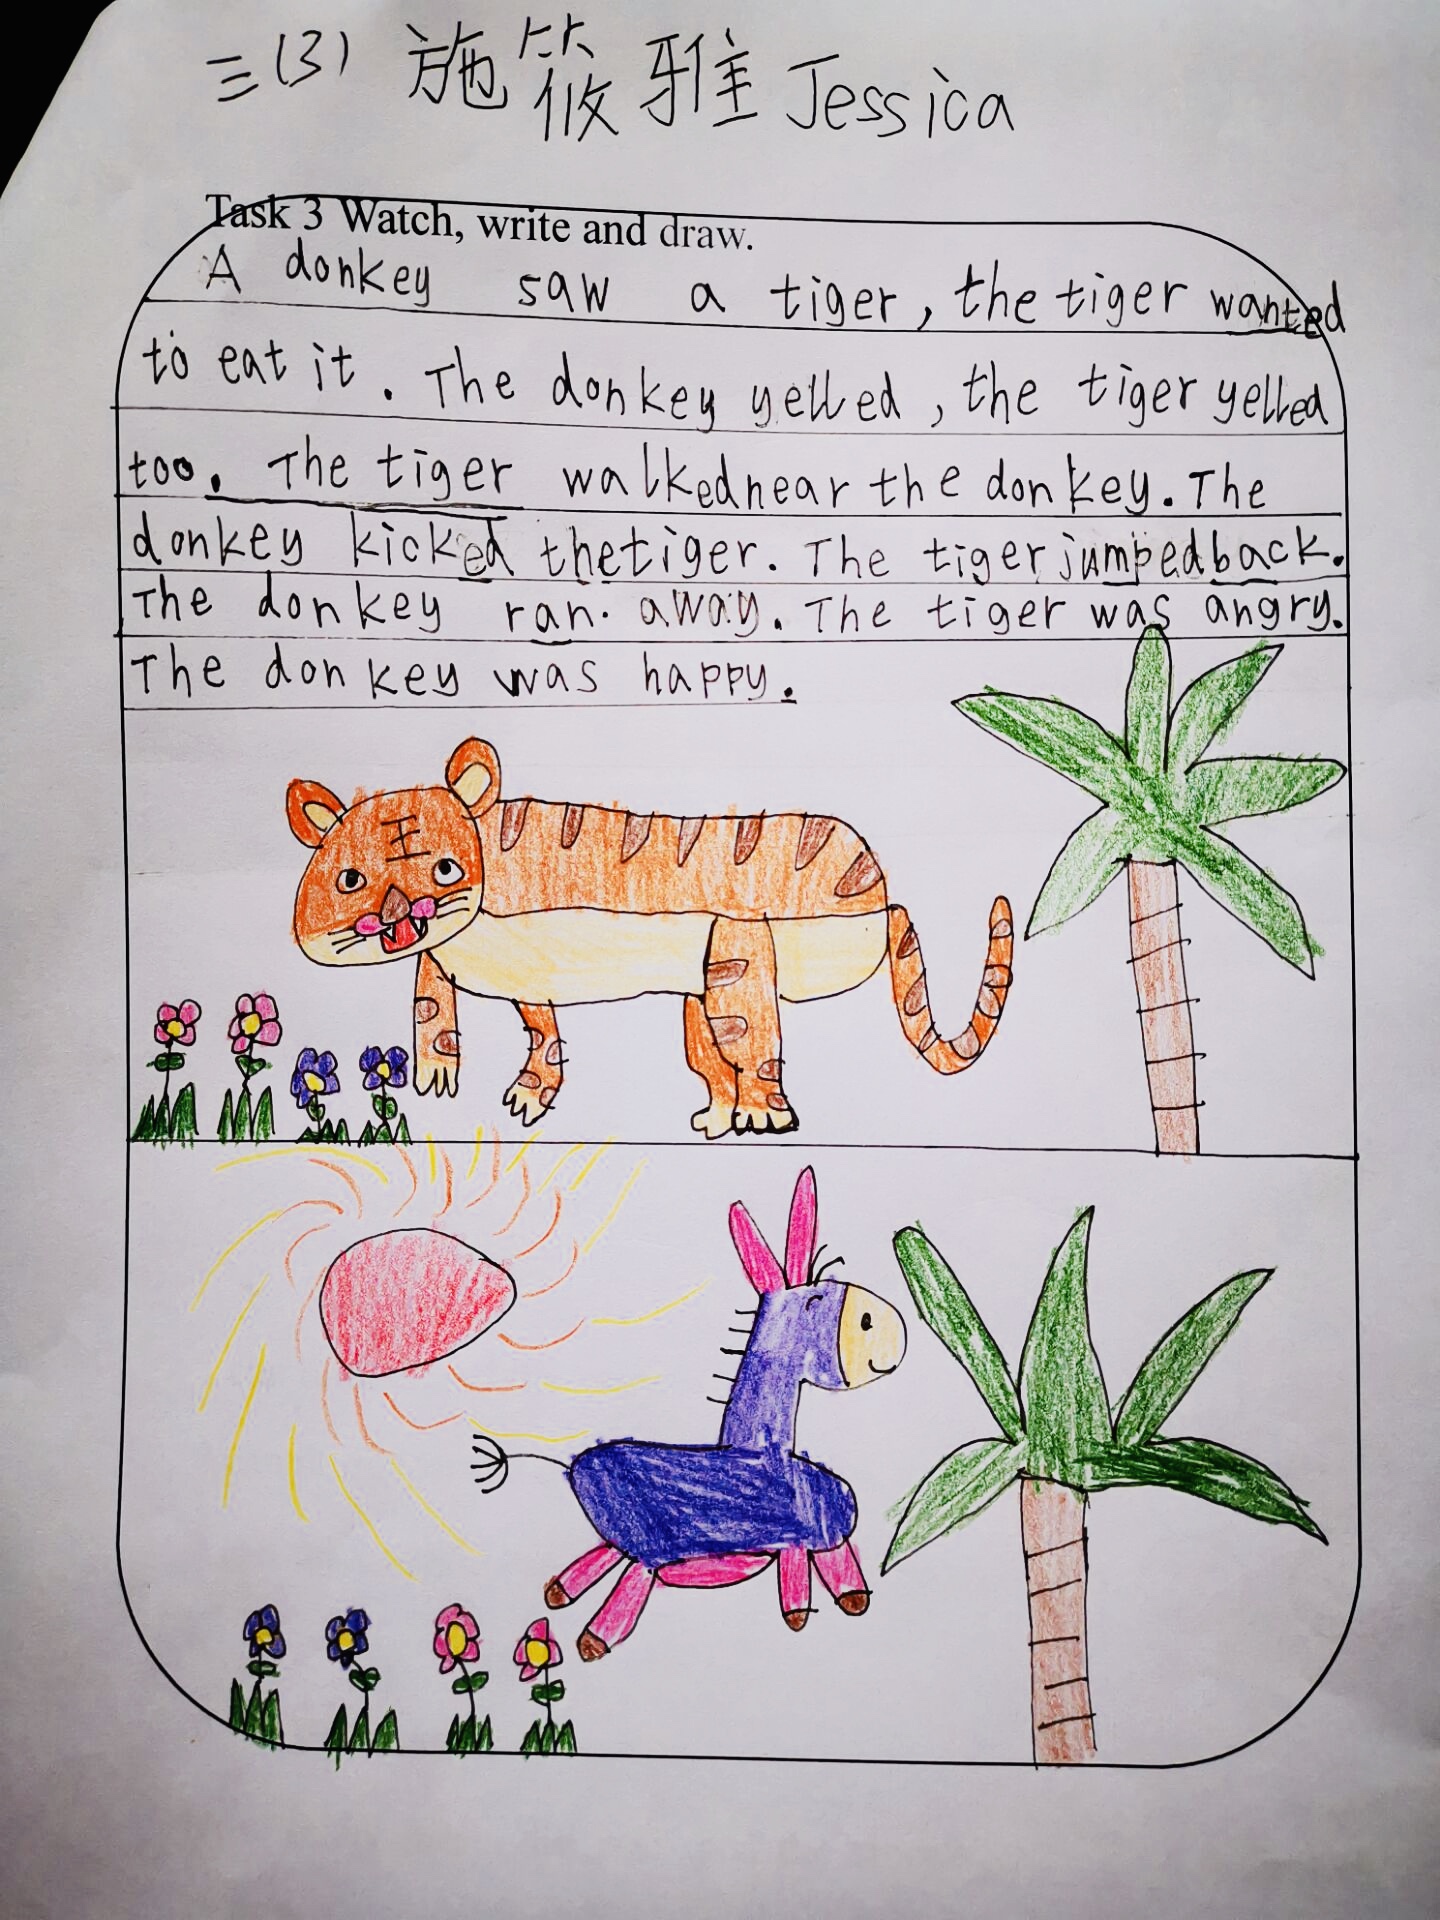 三(3) 施筱雅 Jessica
Task 3 Watch, write and draw.
A donkey saw a tiger, the tiger wanted
to eat it. The donkey yelled, the tiger yelled
too. The tiger walked near the donkey. The
donkey kicked the tiger. The tiger jumped back.
The donkey ran. away. The tiger was angry.
The donkey was happy.
王